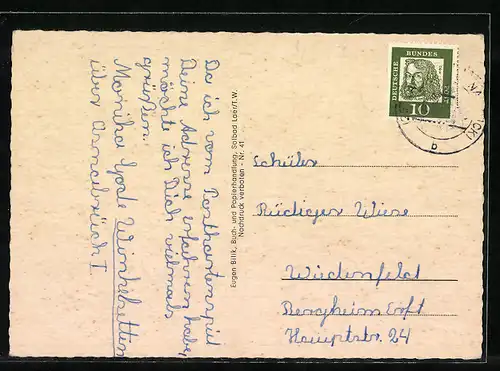 Da ich vom Postkartenspiel
Deine Adresse erfahren habe,
möchte ich Dich vielmals
grüßen.
Monika Winkelsetten
über Osnabrück I
Eugen Billk, Buch- und Papierhandlung, Solbad Laer/T.W.
Nachdruck verboten - Nr. 41
DEUTSCHE BUNDES
10
b
Schüler
Rüdiger Wiese
Wiedenfeld
Bergheim Erft
Hauptstr. 24